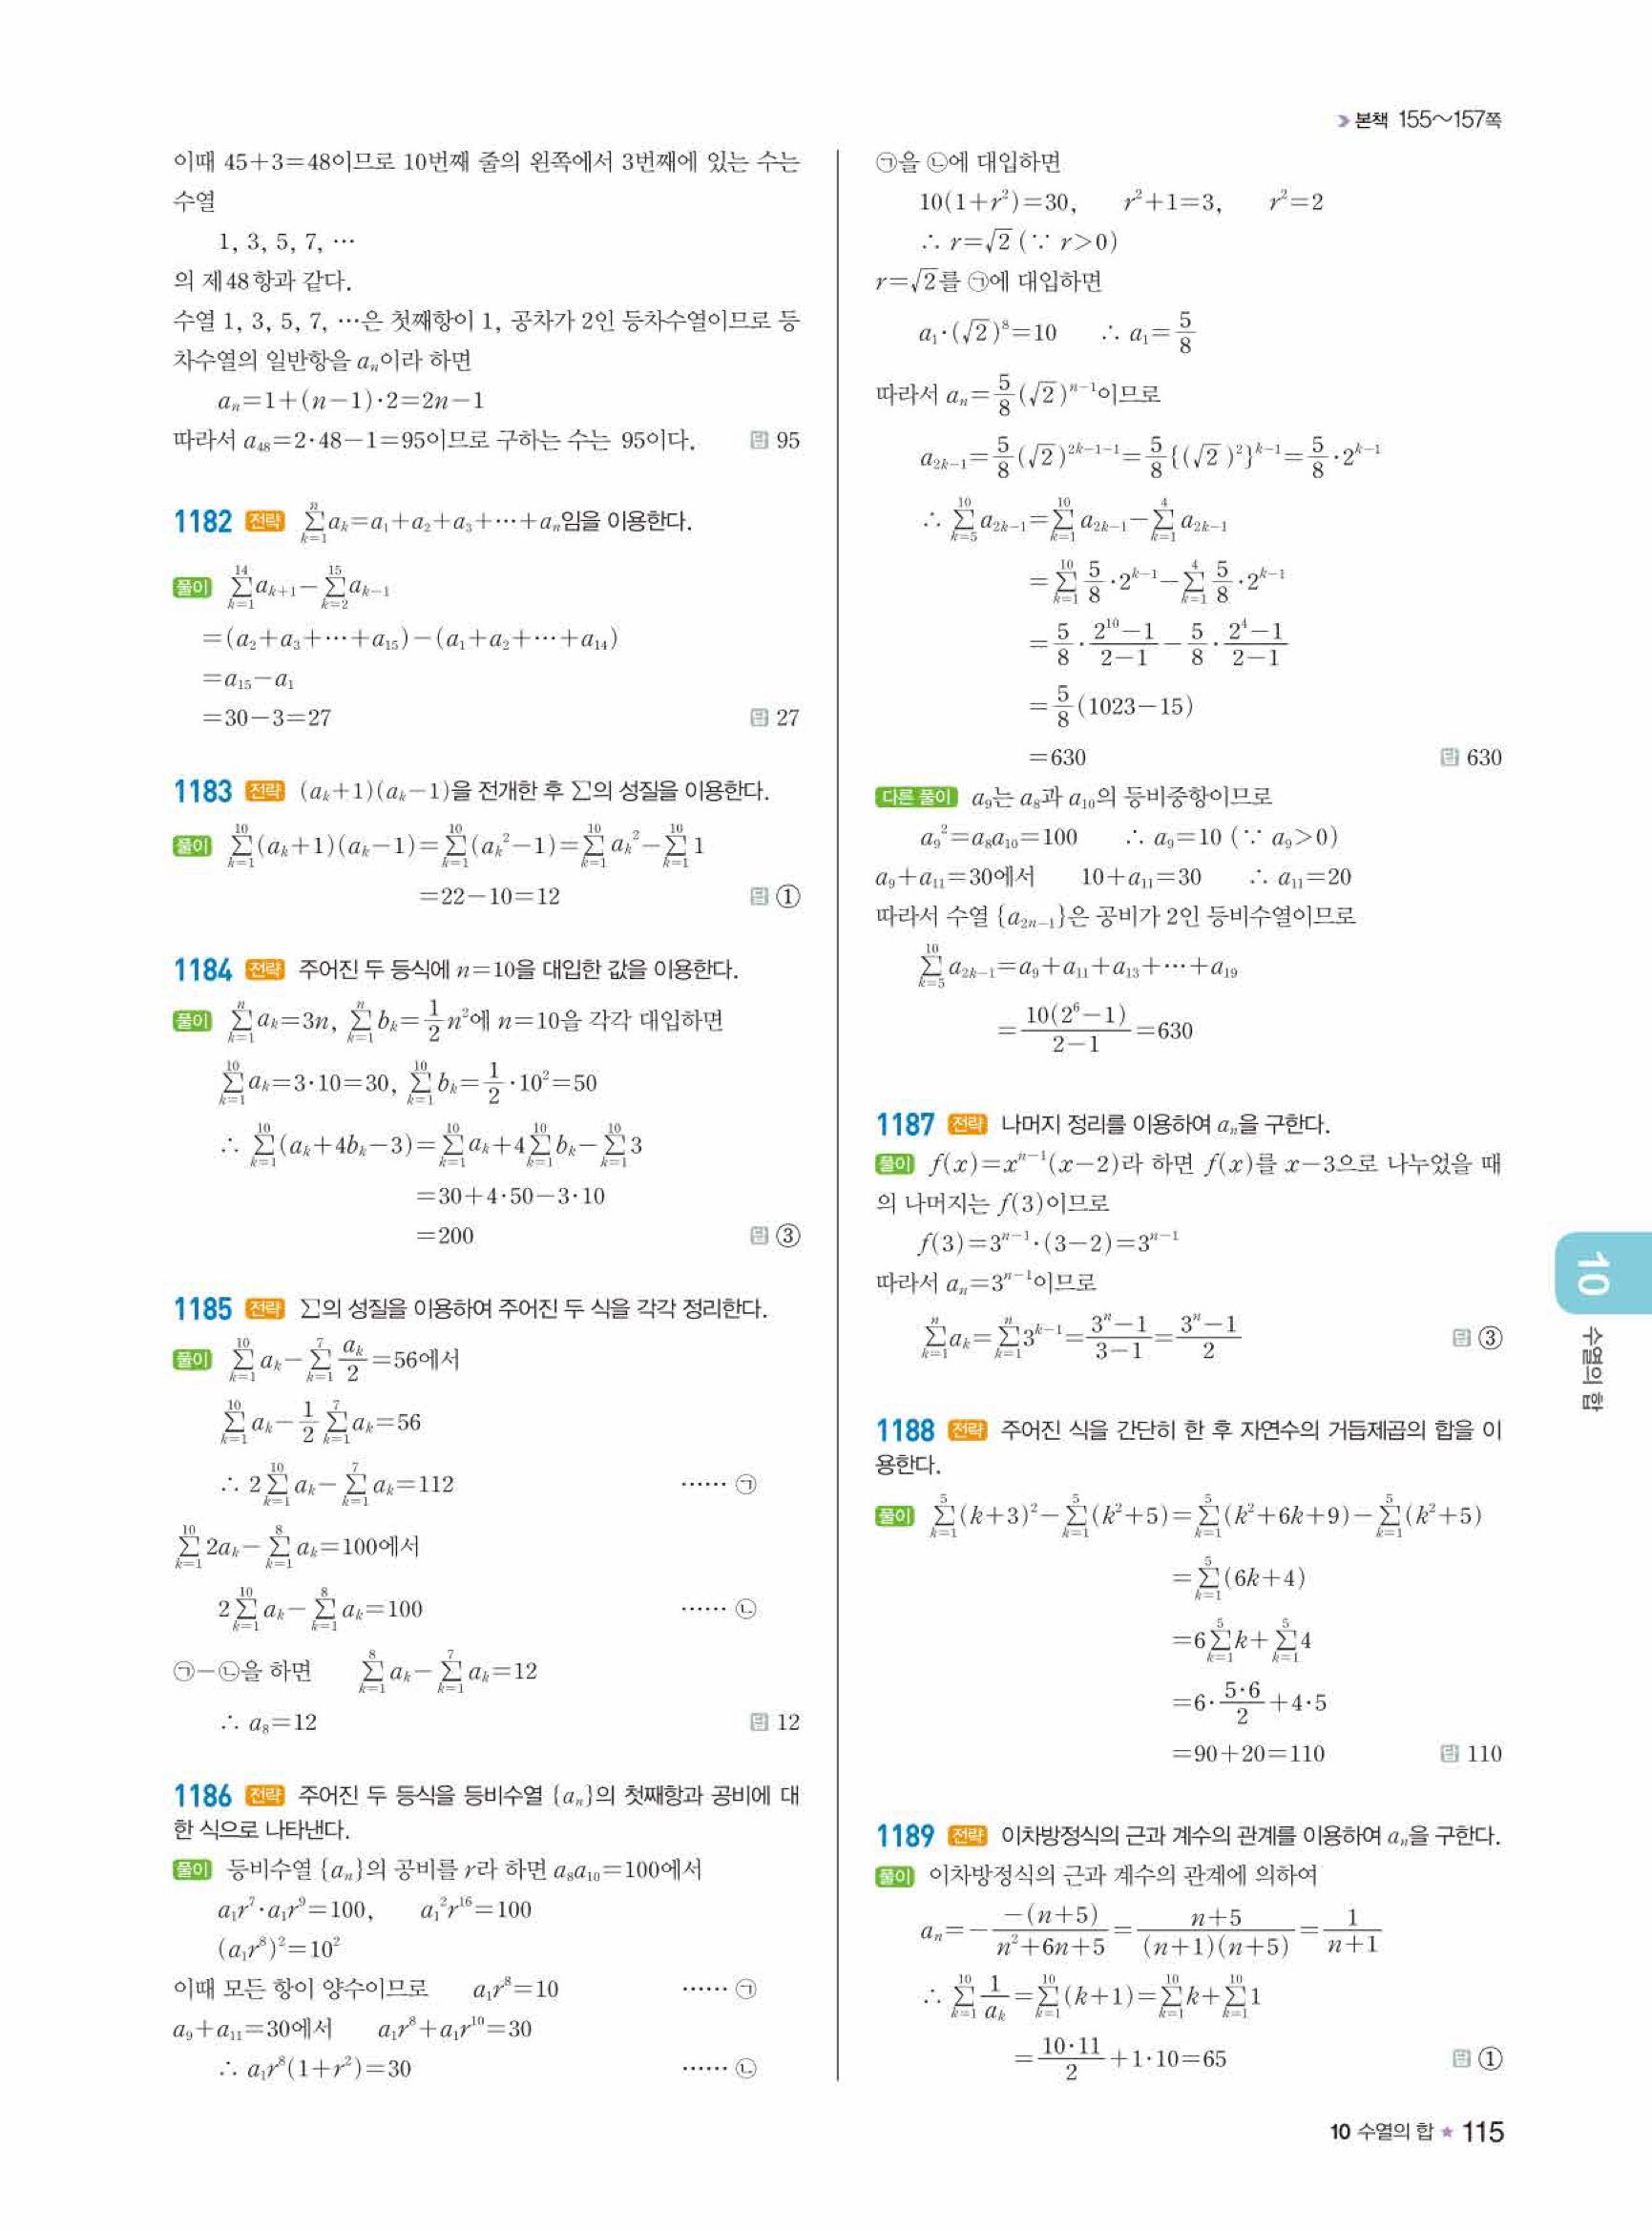 본책 155~157쪽
이때 45+3=48이므로 10번째 줄의 왼쪽에서 3번째에 있는 수는
수열
1, 3, 5, 7, …
의 제48항과 같다.
수열 1, 3, 5, 7, …은 첫째항이 1, 공차가 2인 등차수열이므로 등
차수열의 일반항을 aₙ이라 하면
aₙ=1+(n-1)·2=2n-1
따라서 a₄₈=2·48-1=95이므로 구하는 수는 95이다. 답 95
1182 전략 ∑_{k=1}^{n} aₖ=a₁+a₂+a₃+⋯+aₙ임을 이용한다.
풀이 ∑_{k=1}^{14} a_{k+1}-∑_{k=2}^{15} a_{k-1}
=(a₂+a₃+⋯+a₁₅)-(a₁+a₂+⋯+a₁₄)
=a₁₅-a₁
=30-3=27 답 27
1183 전략 (aₖ+1)(aₖ-1)을 전개한 후 ∑의 성질을 이용한다.
풀이 ∑_{k=1}^{10} (aₖ+1)(aₖ-1)=∑_{k=1}^{10} (aₖ²-1)=∑_{k=1}^{10} aₖ²-∑_{k=1}^{10} 1
=22-10=12 답 ①
1184 전략 주어진 두 등식에 n=10을 대입한 값을 이용한다.
풀이 ∑_{k=1}^{n} aₖ=3n, ∑_{k=1}^{n} bₖ=1/2 n²에 n=10을 각각 대입하면
∑_{k=1}^{10} aₖ=3·10=30, ∑_{k=1}^{10} bₖ=1/2·10²=50
∴ ∑_{k=1}^{10} (aₖ+4bₖ-3)=∑_{k=1}^{10} aₖ+4∑_{k=1}^{10} bₖ-∑_{k=1}^{10} 3
=30+4·50-3·10
=200 답 ③
1185 전략 ∑의 성질을 이용하여 주어진 두 식을 각각 정리한다.
풀이 ∑_{k=1}^{10} aₖ-∑_{k=1}^{7} aₖ/2=56에서
∑_{k=1}^{10} aₖ-1/2 ∑_{k=1}^{7} aₖ=56
∴ 2∑_{k=1}^{10} aₖ-∑_{k=1}^{7} aₖ=112 …… ㉠
∑_{k=1}^{10} 2aₖ-∑_{k=1}^{8} aₖ=100에서
2∑_{k=1}^{10} aₖ-∑_{k=1}^{8} aₖ=100 …… ㉡
㉠-㉡을 하면 ∑_{k=1}^{8} aₖ-∑_{k=1}^{7} aₖ=12
∴ a₈=12 답 12
1186 전략 주어진 두 등식을 등비수열 {aₙ}의 첫째항과 공비에 대
한 식으로 나타낸다.
풀이 등비수열 {aₙ}의 공비를 r라 하면 a₈a₁₀=100에서
a₁r⁷·a₁r⁹=100, a₁²r¹⁶=100
(a₁r⁸)²=10²
이때 모든 항이 양수이므로 a₁r⁸=10 …… ㉠
a₉+a₁₁=30에서 a₁r⁸+a₁r¹⁰=30
∴ a₁r⁸(1+r²)=30 …… ㉡
㉠을 ㉡에 대입하면
10(1+r²)=30, r²+1=3, r²=2
∴ r=√2 (∵ r>0)
r=√2를 ㉠에 대입하면
a₁·(√2)⁸=10 ∴ a₁=5/8
따라서 aₙ=5/8 (√2)ⁿ⁻¹이므로
a_{2k-1}=5/8 (√2)^{2k-1-1}=5/8 {(√2)²}^{k-1}=5/8·2^{k-1}
∴ ∑_{k=5}^{10} a_{2k-1}=∑_{k=1}^{10} a_{2k-1}-∑_{k=1}^{4} a_{2k-1}
=∑_{k=1}^{10} 5/8·2^{k-1}-∑_{k=1}^{4} 5/8·2^{k-1}
=5/8·(2¹⁰-1)/(2-1)-5/8·(2⁴-1)/(2-1)
=5/8 (1023-15)
=630 답 630
다른 풀이 a₉는 a₈과 a₁₀의 등비중항이므로
a₉²=a₈a₁₀=100 ∴ a₉=10 (∵ a₉>0)
a₉+a₁₁=30에서 10+a₁₁=30 ∴ a₁₁=20
따라서 수열 {a_{2n-1}}은 공비가 2인 등비수열이므로
∑_{k=5}^{10} a_{2k-1}=a₉+a₁₁+a₁₃+⋯+a₁₉
=10(2⁶-1)/(2-1)=630
1187 전략 나머지 정리를 이용하여 aₙ을 구한다.
풀이 f(x)=xⁿ⁻¹(x-2)라 하면 f(x)를 x-3으로 나누었을 때
의 나머지는 f(3)이므로
f(3)=3ⁿ⁻¹·(3-2)=3ⁿ⁻¹
따라서 aₙ=3ⁿ⁻¹이므로
∑_{k=1}^{n} aₖ=∑_{k=1}^{n} 3^{k-1}=(3ⁿ-1)/(3-1)=(3ⁿ-1)/2 답 ③
1188 전략 주어진 식을 간단히 한 후 자연수의 거듭제곱의 합을 이
용한다.
풀이 ∑_{k=1}^{5} (k+3)²-∑_{k=1}^{5} (k²+5)=∑_{k=1}^{5} (k²+6k+9)-∑_{k=1}^{5} (k²+5)
=∑_{k=1}^{5} (6k+4)
=6∑_{k=1}^{5} k+∑_{k=1}^{5} 4
=6·(5·6)/2+4·5
=90+20=110 답 110
1189 전략 이차방정식의 근과 계수의 관계를 이용하여 aₙ을 구한다.
풀이 이차방정식의 근과 계수의 관계에 의하여
aₙ=-(-(n+5))/(n²+6n+5)=(n+5)/((n+1)(n+5))=1/(n+1)
∴ ∑_{k=1}^{10} 1/aₖ=∑_{k=1}^{10} (k+1)=∑_{k=1}^{10} k+∑_{k=1}^{10} 1
=(10·11)/2+1·10=65 답 ①
10
수열의 합
10 수열의 합 ★ 115